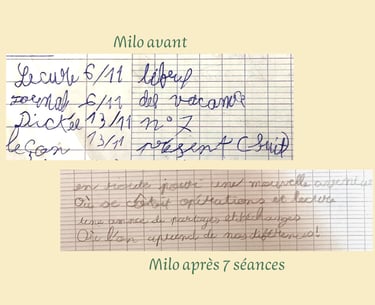 Milo avant
Lecture 6/11 libre
journal 6/11 des vacance
Dictée 13/11 n° 7
leçon 13/11 présent (suit)
en route pour une nouvelle
Où se côtoit opérations et lecture
une année de partages et échanges
Où l'on apprend de nos différences!
Milo après 7 séances